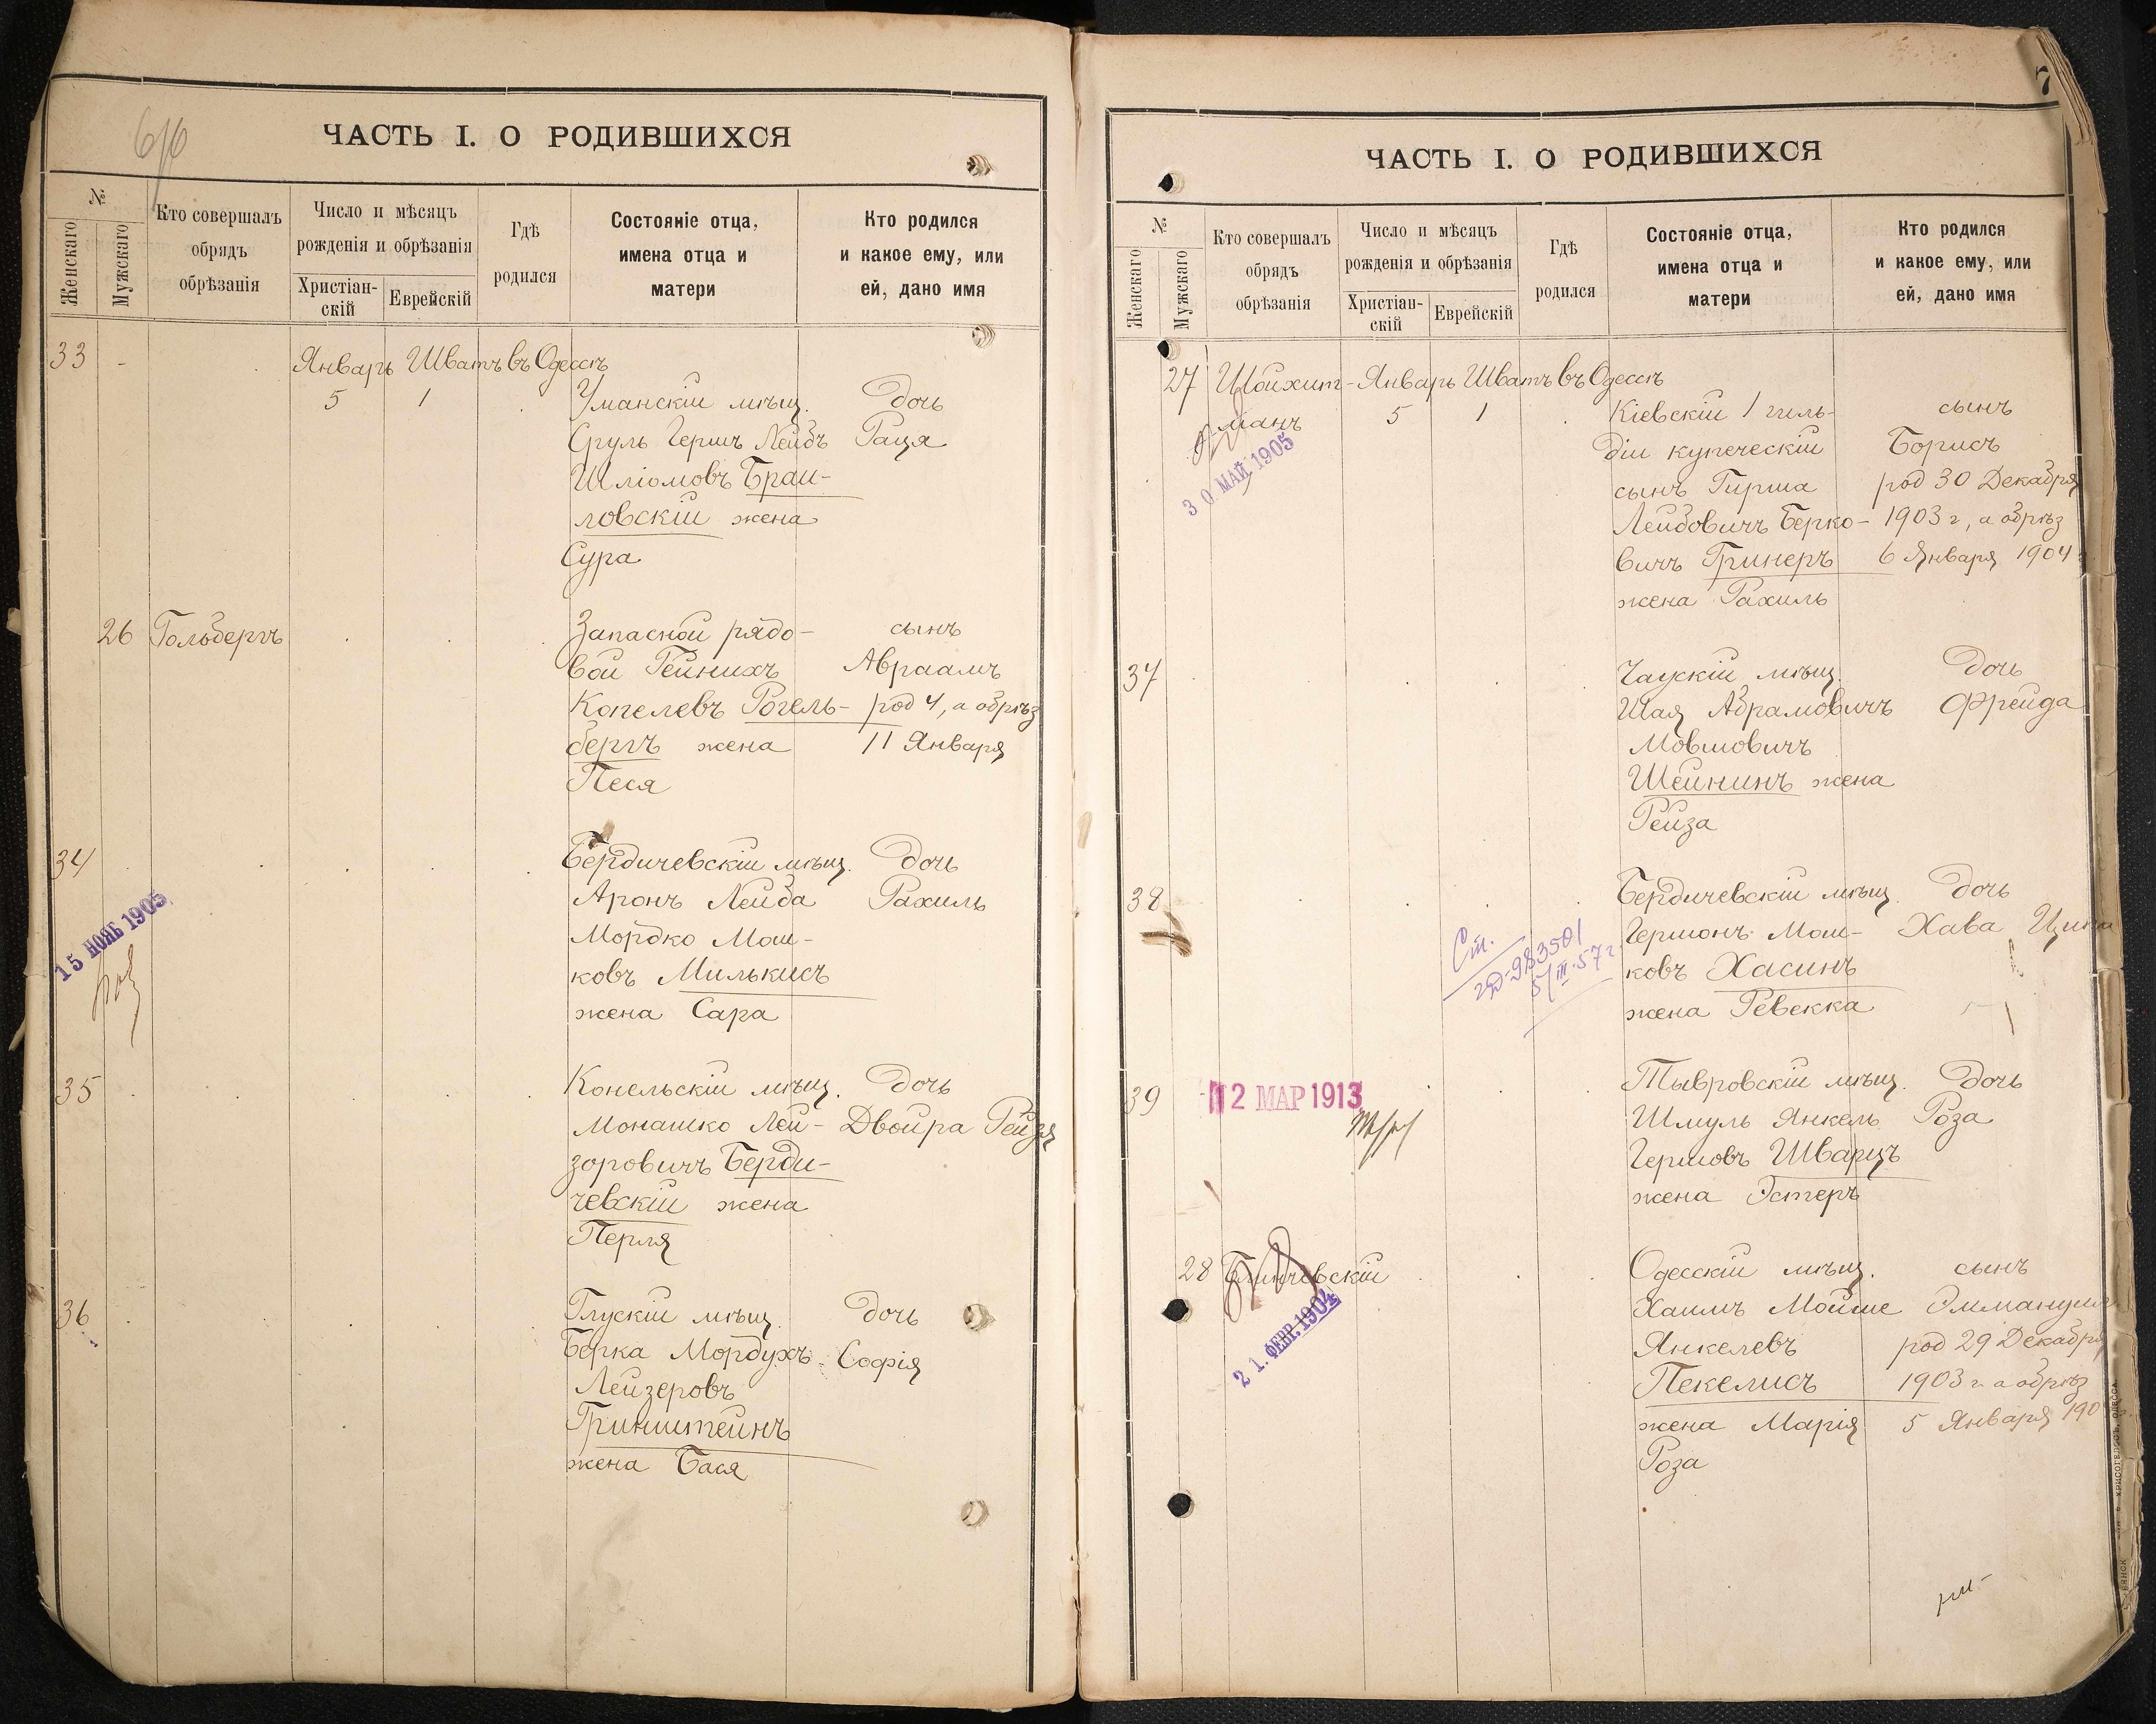 ЧАСТЬ I. О РОДИВШИХСЯ
№
Женскаго
Мужскаго
Кто совершалъ
обрядъ
обрѣзанія
Число и мѣсяцъ
рожденія и обрѣзанія
Христіан-
скій
Еврейскій
Гдѣ
родился
Состояніе отца,
имена отца и
матери
Кто родился
и какое ему, или
ей, дано имя
33 - Январь Шватъ въ Одессѣ
5 1 Уманскій мѣщ. Дочь
Сруль Гершъ Лейбъ Рася
Шліомовъ Браи-
ловскій жена
Сура
26 Гольбергъ Запасной рядо- сынъ
вой Гейнихъ Авраамъ
Копелевъ Рогель- род 4, а обрѣз
бергъ жена 11 Января
Песя
34 Бердичевскій мѣщ. Дочь
Аронъ Лейба Рахиль
15 НОЯБ 1905
Мордко Мош-
ковъ Милькисъ
жена Сара
35 Конельскій мѣщ. Дочь
Монашко Лей- Двойра Рейзя
зоровичъ Берди-
чевскій жена
Перля
36 Глускій мѣщ. Дочь
Берка Мордухъ Софія
Лейзеровъ
Гринштейнъ
жена Бася
7
ЧАСТЬ I. О РОДИВШИХСЯ
№
Женскаго
Мужскаго
Кто совершалъ
обрядъ
обрѣзанія
Число и мѣсяцъ
рожденія и обрѣзанія
Христіан-
скій
Еврейскій
Гдѣ
родился
Состояніе отца,
имена отца и
матери
Кто родился
и какое ему, или
ей, дано имя
27 Шойхит- Январь Шватъ въ Одессѣ
манъ 5 1 Кіевскій 1 гиль- сынъ
30 МАЙ 1905
діи купеческій Борисъ
сынъ Гирша род 30 Декабря
Лейбовичъ Берко- 1903 г, а обрѣз
вичъ Гринеръ 6 Января 1904
жена Рахиль
37 Чаускій мѣщ. Дочь
Шая Абрамовичъ Фрейда
Мовшовичъ
Шейнинъ жена
Рейза
38 Бердичевскій мѣщ. Дочь
Гершонъ Мош- Хава
ковъ Хасинъ
жена Ревекка
39 12 МАР 1913 Тывровскій мѣщ. Дочь
Шмуль Янкель Роза
Гершовъ Шварцъ
жена Эстеръ
28 Блинчевскій Одесскій мѣщ. сынъ
21. ФЕВР. 1904
Хаимъ Мойше Эммануилъ
Янкелевъ род 29 Декабря
Пекелисъ 1903 г. а обрѣз
жена Марія 5 Января 190
Роза